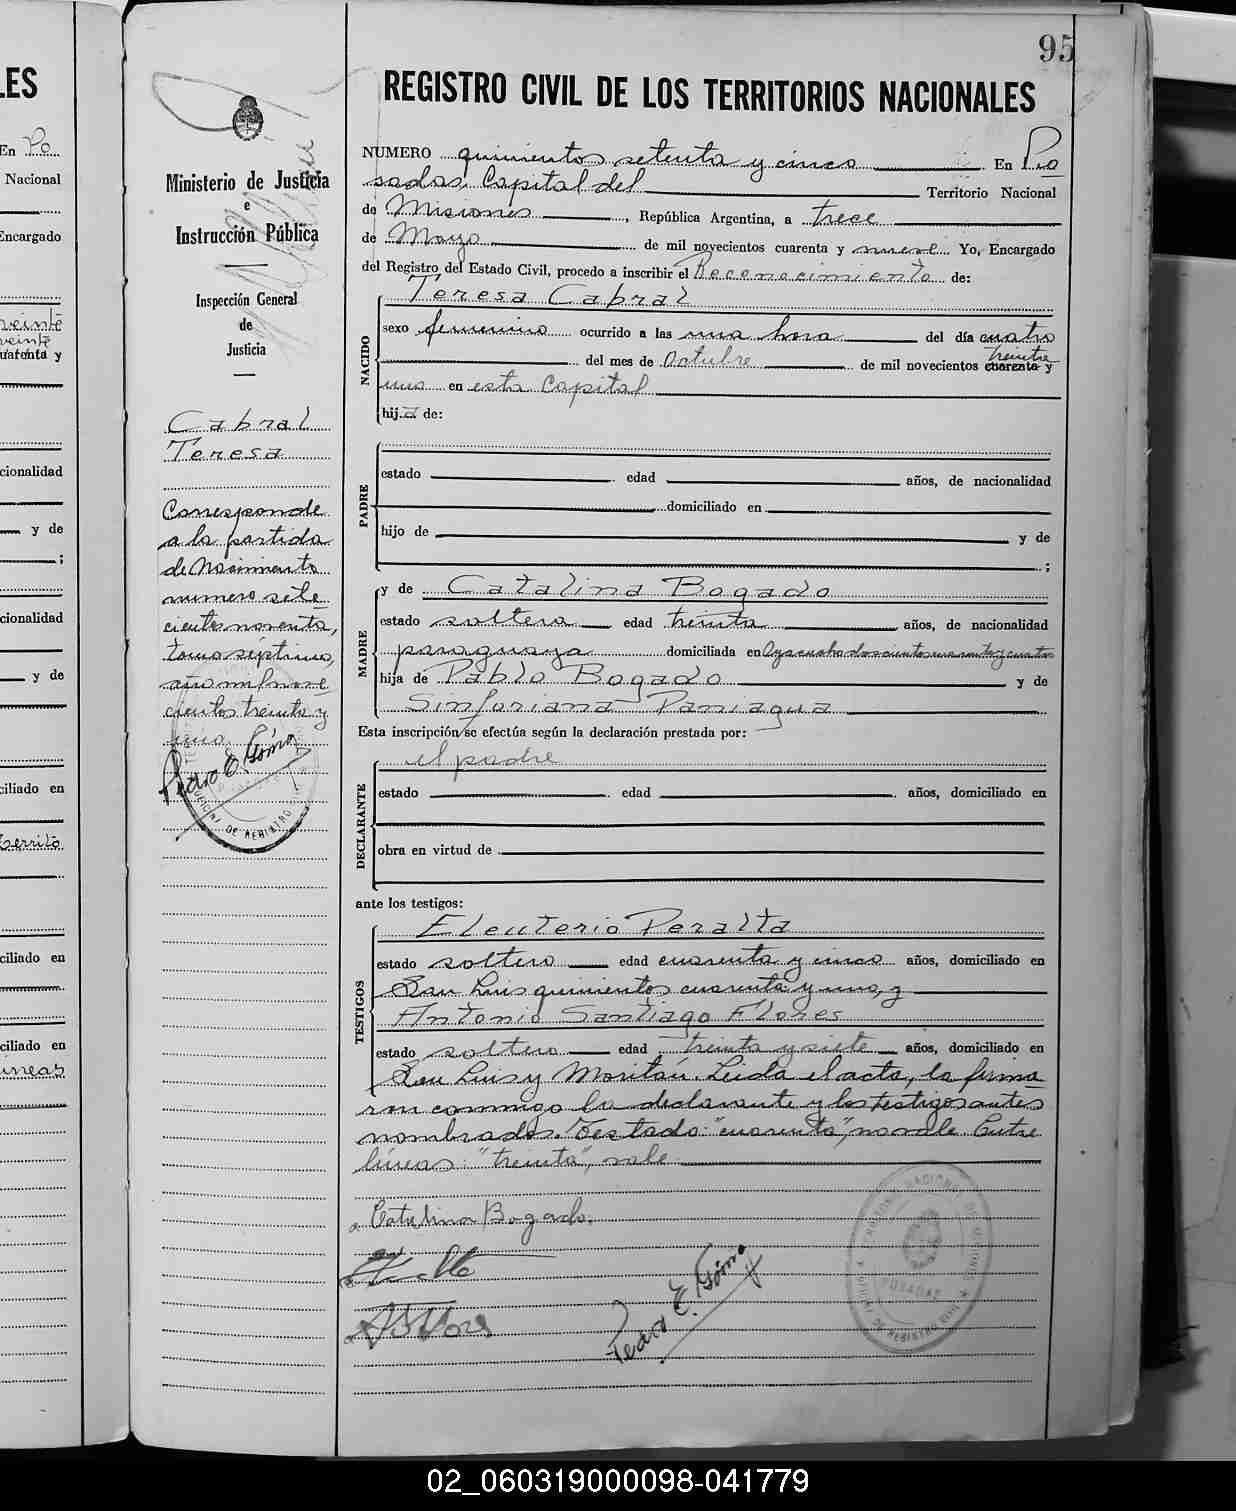 95
REGISTRO CIVIL DE LOS TERRITORIOS NACIONALES
NUMERO quinientos setenta y cinco En Po
sadas, Capital del Territorio Nacional
de Misiones, República Argentina, a trece
de Mayo de mil novecientos cuarenta y nueve. Yo, Encargado
del Registro del Estado Civil, procedo a inscribir el Reconocimiento de:
Teresa Cabral
NACIDO
sexo femenino ocurrido a las una hora del día cuatro
treinta
del mes de Octubre de mil novecientos cuarenta y
uno en esta Capital
hija de:
PADRE
estado edad años, de nacionalidad
domiciliado en
hijo de y de
;
MADRE
y de Catalina Bogado
estado soltera edad treinta años, de nacionalidad
paraguaya domiciliada en Ayacucho doscientos cuarenta y cuatro
hija de Pablo Bogado y de
Sinforiana Paniagua
Esta inscripción se efectúa según la declaración prestada por:
DECLARANTE
el padre
estado edad años, domiciliado en
obra en virtud de
ante los testigos:
TESTIGOS
Eleuterio Peralta
estado soltero edad cuarenta y cinco años, domiciliado en
San Luis quinientos cuarenta y uno, y
Antonio Santiago Flores
estado soltero edad treinta y siete años, domiciliado en
San Luis y Moritán. Leida el acta, la firma
ron conmigo la declarante y los testigos antes
nombrados. Testado: "cuarenta", no vale. Entre
líneas: "treinta", vale.
Catalina Bogado
Pedro E. Gómez
POSADAS
Ministerio de Justicia
e
Instrucción Pública
Inspección General
de
Justicia
Cabral
Teresa
Corresponde
a la partida
de Nacimiento
numero sete
cientos noventa,
tomo séptimo,
año mil nove
cientos treinta y
uno.
Pedro E. Gómez
LES
En Po
Nacional
Encargado
veinte
veinte
cuarenta y
cionalidad
y de
;
cionalidad
y de
ciliado en
Territo
ciliado en
ciliado en
lineas
02_060319000098-041779